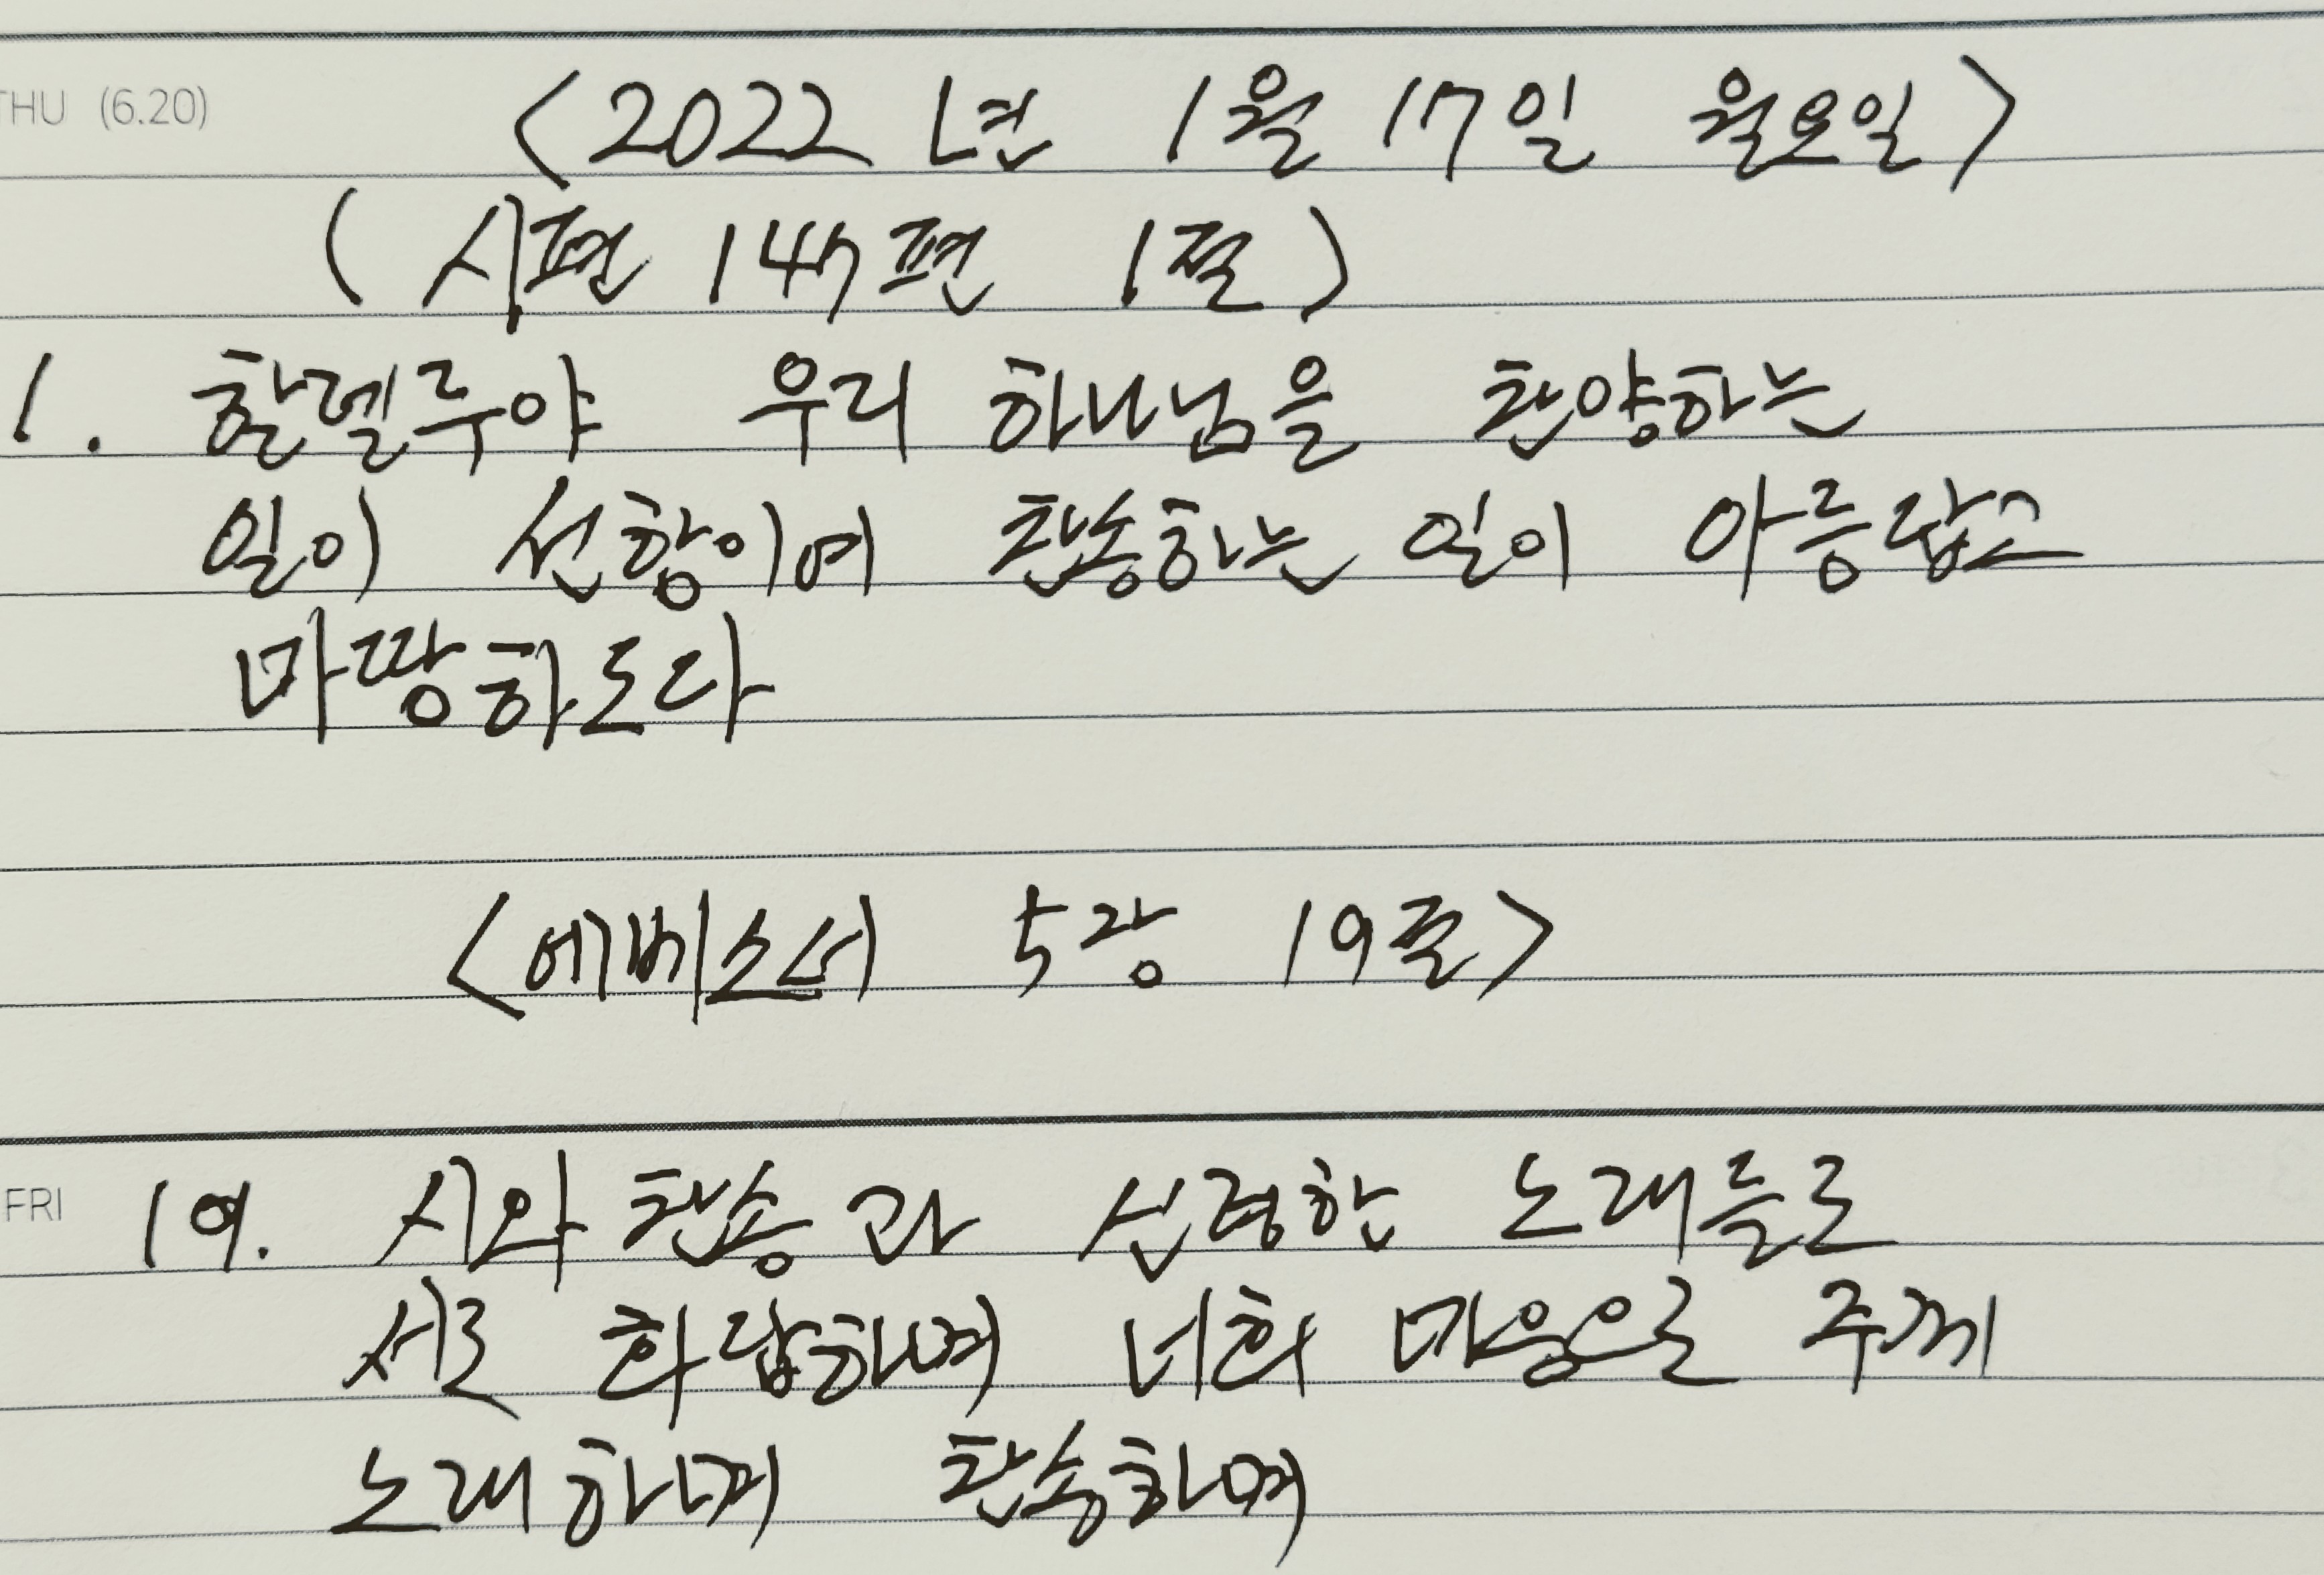 THU (6.20)
<2022년 1월 17일 월요일>
(시편 147편 1절)
1. 할렐루야 우리 하나님을 찬양하는
일이 선함이여 찬송하는 일이 아름답고
마땅하도다
<에베소서 5장 19절>
FRI 19. 시와 찬송과 신령한 노래들로
서로 화답하며 너희 마음으로 주께
노래하며 찬송하며